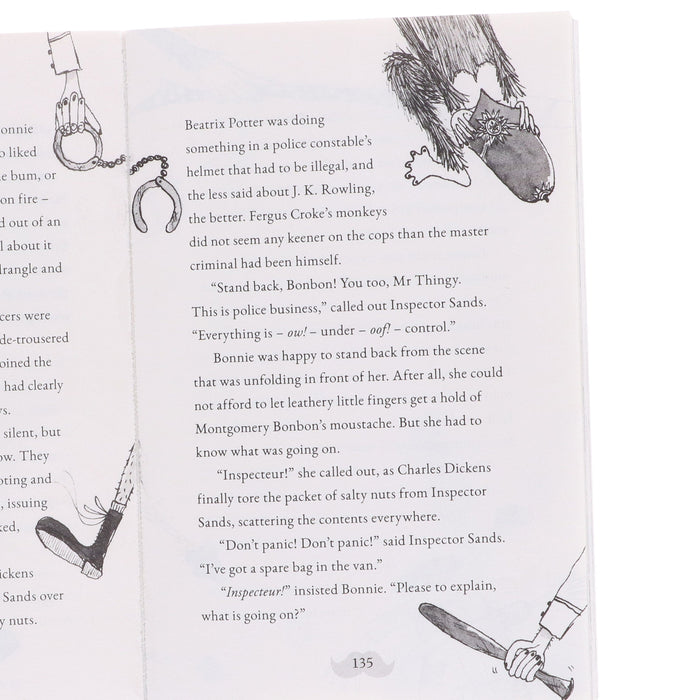 onnie
o liked
e bum, or
on fire –
d out of an
l about it
drangle and
cers were
de-trousered
oined the
had clearly
vs.
silent, but
ow. They
oting and
, issuing
ked,
ickens
Sands over
y nuts.
Beatrix Potter was doing
something in a police constable’s
helmet that had to be illegal, and
the less said about J. K. Rowling,
the better. Fergus Croke’s monkeys
did not seem any keener on the cops than the master
criminal had been himself.
“Stand back, Bonbon! You too, Mr Thingy.
This is police business,” called out Inspector Sands.
“Everything is – ow! – under – oof! – control.”
Bonnie was happy to stand back from the scene
that was unfolding in front of her. After all, she could
not afford to let leathery little fingers get a hold of
Montgomery Bonbon’s moustache. But she had to
know what was going on.
“Inspecteur!” she called out, as Charles Dickens
finally tore the packet of salty nuts from Inspector
Sands, scattering the contents everywhere.
“Don’t panic! Don’t panic!” said Inspector Sands.
“I’ve got a spare bag in the van.”
“Inspecteur!” insisted Bonnie. “Please to explain,
what is going on?”
135